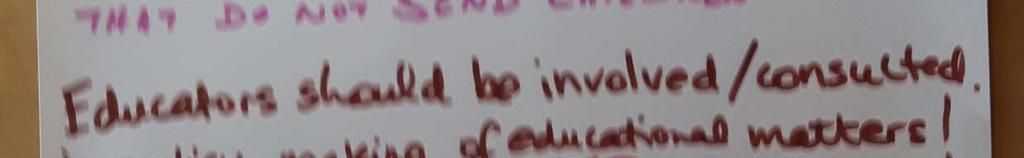 THAT DO NOT SEND
Educators should be involved/consulted.
making of educational matters!